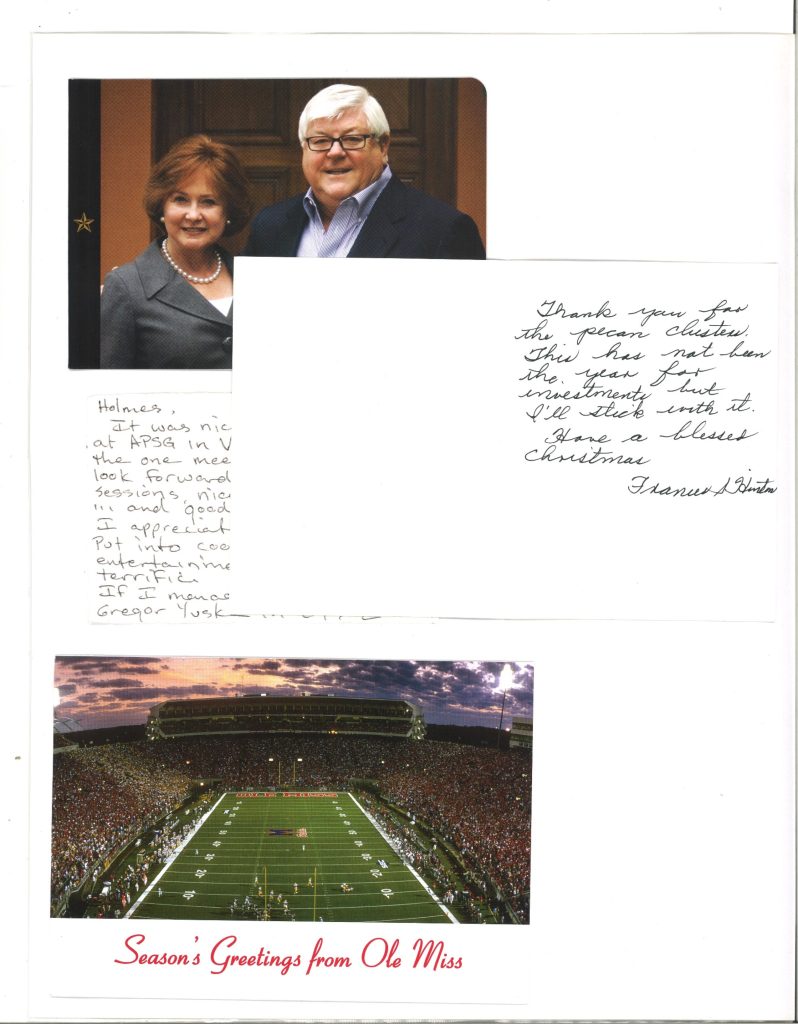 Thank you for
the pecan clusters.
This has not been
the year for
investments but
I'll stick with it.
Have a blessed
Christmas
Frances S. Hinton
Holmes,
It was nic
at APSG in V
the one mee
look forward
sessions, nic
!!! and good
I appreciat
Put into coo
entertainme
terrific.
If I
Gregor Yusk
Season's Greetings from Ole Miss